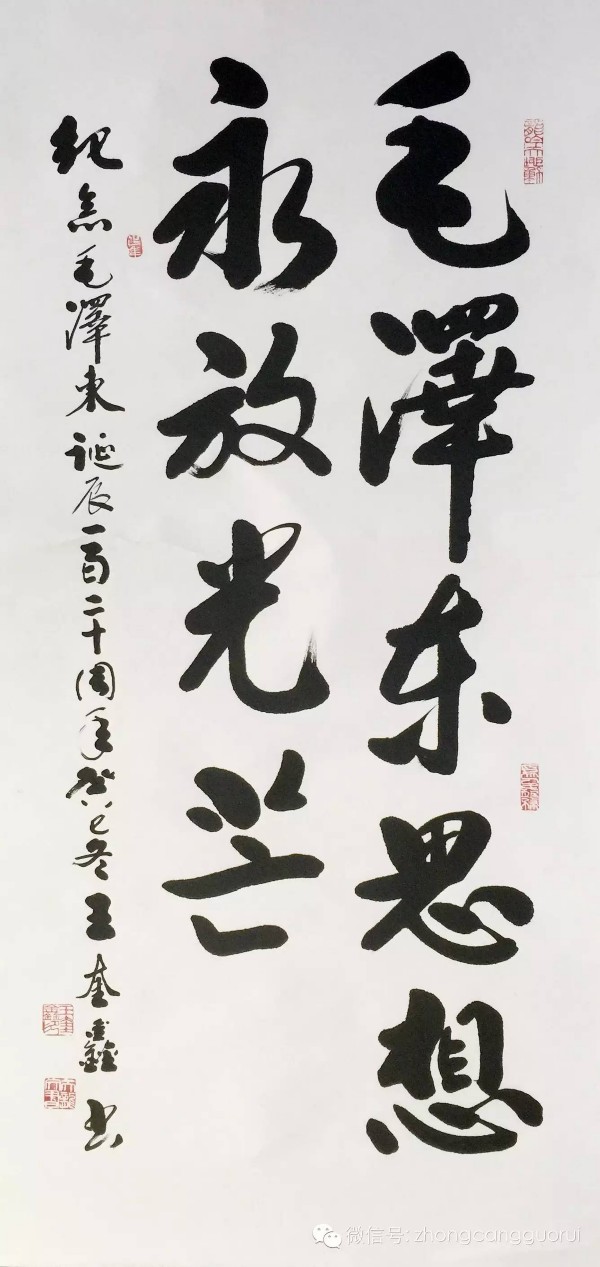 毛澤东思想
永放光芒
纪念毛澤東诞辰一百二十周年癸巳冬王奎鑫书
微信号: zhongcangguorui